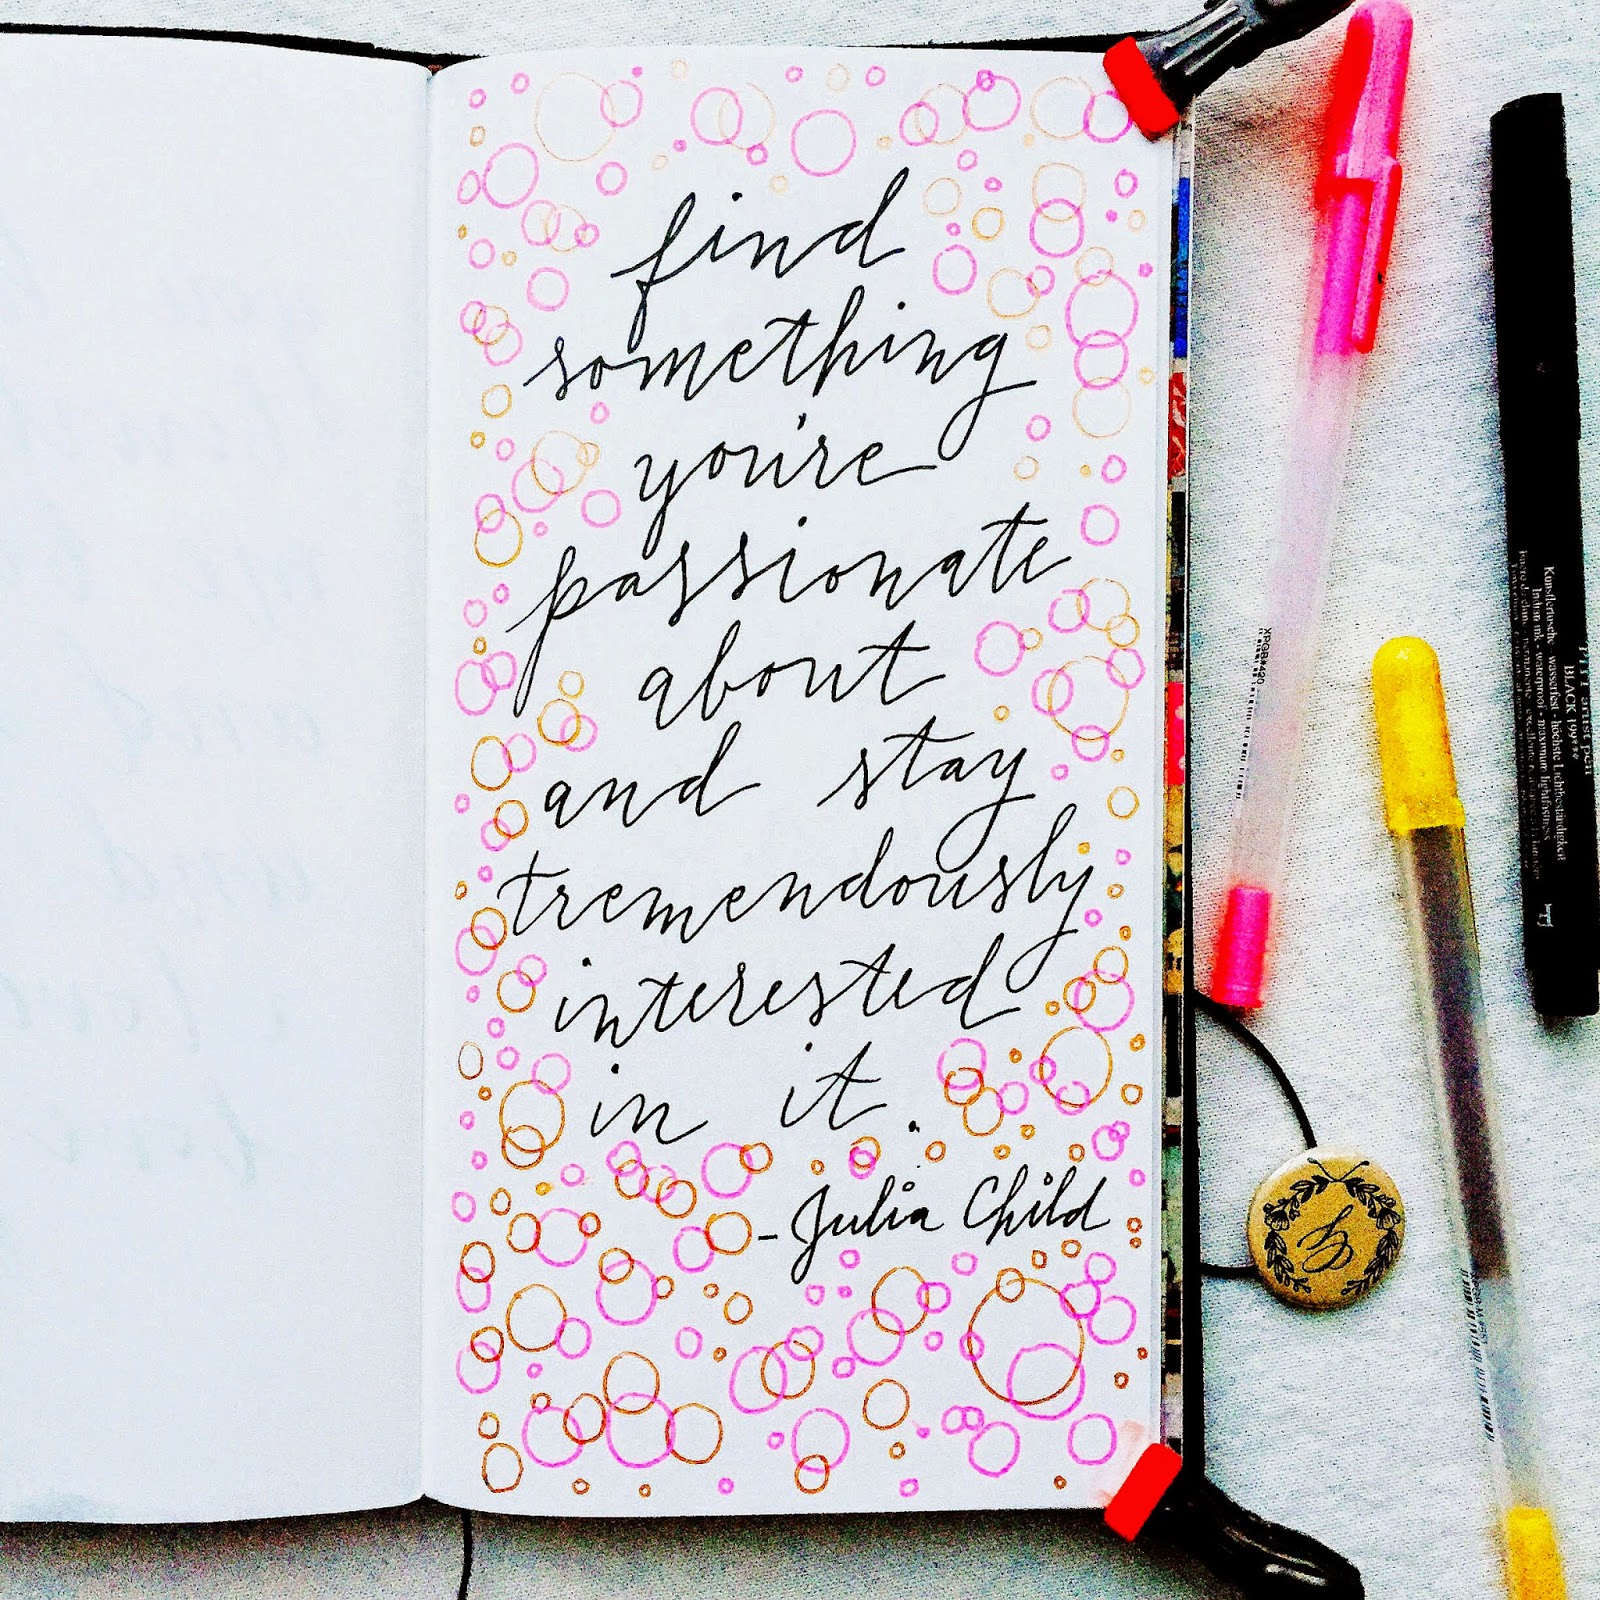 find
something
you're
passionate
about
and stay
tremendously
interested
in it.
- Julia Child
XPGB#420
PITT artist pen
BLACK 199***
Kunstlertusche - wasserfest - höchste Lichtbeständigkeit
Indian ink - waterproof - maximum lightfastness